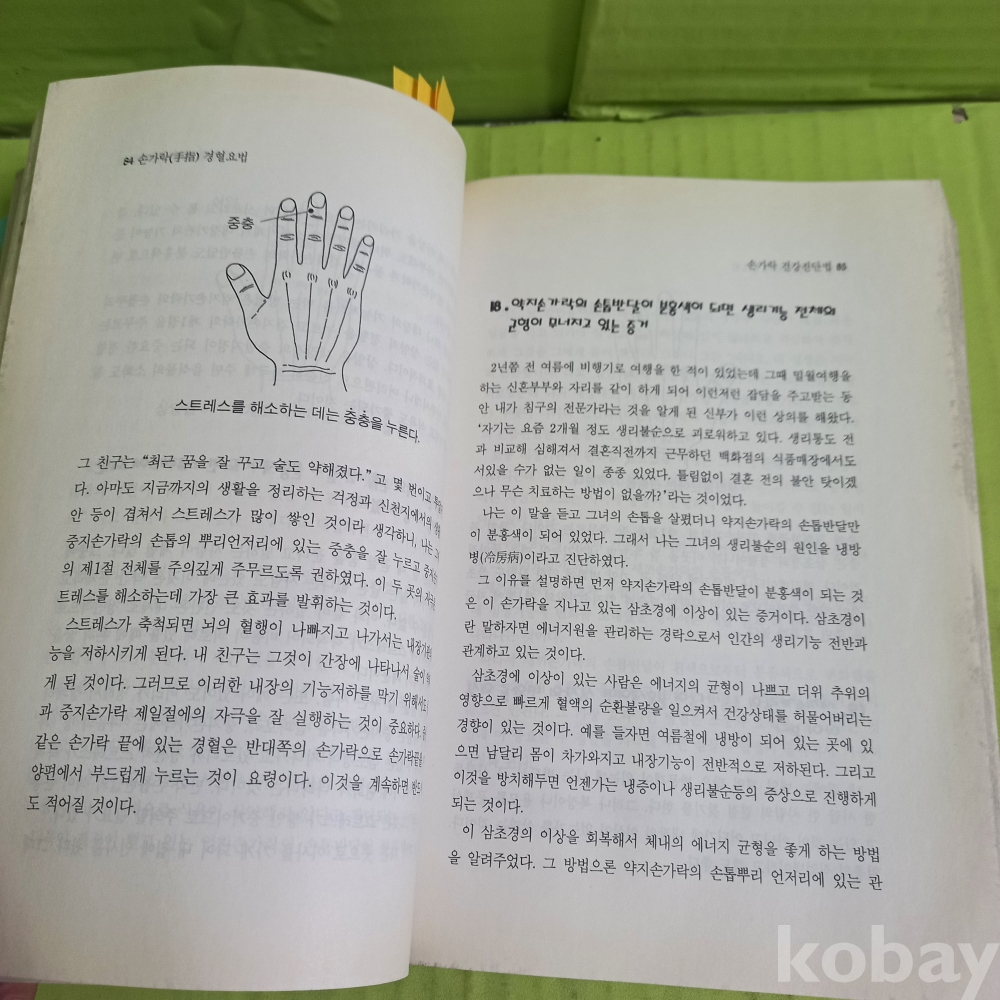 84 손가락(手指) 경혈요법
중충
스트레스를 해소하는 데는 중충을 누른다.
그 친구는 “최근 꿈을 잘 꾸고 술도 약해졌다.”고 몇 번이고
다. 아마도 지금까지의 생활을 정리하는 걱정과 신천지에서의
안 등이 겹쳐서 스트레스가 많이 쌓인 것이라 생각하니, 나는
중지손가락의 손톱의 뿌리언저리에 있는 중충을 잘 누르고
의 제1절 전체를 주의깊게 주무르도록 권하였다. 이 두 곳의
트레스를 해소하는데 가장 큰 효과를 발휘하는 것이다.
스트레스가 축적되면 뇌의 혈행이 나빠지고 나가서는
능을 저하시키게 된다. 내 친구는 그것이 간장에 나타나서 술이
게 된 것이다. 그러므로 이러한 내장의 기능저하를 막기
과 중지손가락 제일절에의 자극을 잘 실행하는 것이 중요하다.
같은 손가락 끝에 있는 경혈은 반대쪽의 손가락으로
양편에서 부드럽게 누르는 것이 요령이다. 이것을 계속하면
도 적어질 것이다.
손가락 건강진단법 85
18. 약지손가락의 손톱반달이 분홍색이 되면 생리기능 전체의
균형이 무너지고 있는 증거
2년쯤 전 여름에 비행기로 여행을 한 적이 있었는데 그때 밀월여행을
하는 신혼부부와 자리를 같이 하게 되어 이런저런 잡담을 주고받는 동
안 내가 침구의 전문가라는 것을 알게 된 신부가 이런 상의를 해왔다.
‘자기는 요즘 2개월 정도 생리불순으로 괴로워하고 있다. 생리통도 전
과 비교해 심해져서 결혼직전까지 근무하던 백화점의 식품매장에서도
서있을 수가 없는 일이 종종 있었다. 틀림없이 결혼 전의 불안 탓이겠
으나 무슨 치료하는 방법이 없을까?’라는 것이었다.
나는 이 말을 듣고 그녀의 손톱을 살폈더니 약지손가락의 손톱반달만
이 분홍색이 되어 있었다. 그래서 나는 그녀의 생리불순의 원인을 냉방
병(冷房病)이라고 진단하였다.
그 이유를 설명하면 먼저 약지손가락의 손톱반달이 분홍색이 되는 것
은 이 손가락을 지나고 있는 삼초경에 이상이 있는 증거이다. 삼초경이
란 말하자면 에너지원을 관리하는 경락으로서 인간의 생리기능 전반과
관계하고 있는 것이다.
삼초경에 이상이 있는 사람은 에너지의 균형이 나쁘고 더위 추위의
영향으로 빠르게 혈액의 순환불량을 일으켜서 건강상태를 허물어버리는
경향이 있는 것이다. 예를 들자면 여름철에 냉방이 되어 있는 곳에 있
으면 남달리 몸이 차가와지고 내장기능이 전반적으로 저하된다. 그리고
이것을 방치해두면 언젠가는 냉증이나 생리불순등의 증상으로 진행하게
되는 것이다.
이 삼초경의 이상을 회복해서 체내의 에너지 균형을 좋게 하는 방법
을 알려주었다. 그 방법으론 약지손가락의 손톱뿌리 언저리에 있는 관
kobay